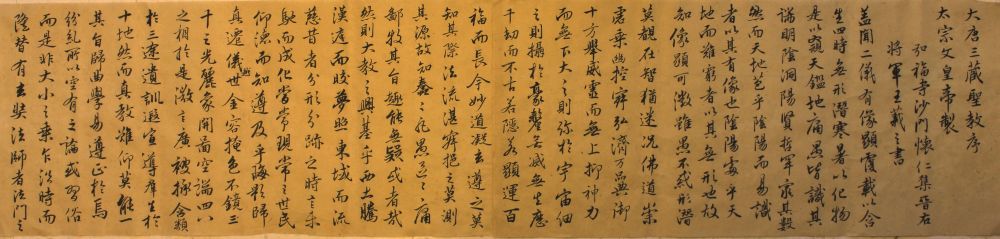 大唐三藏聖教序
太宗文皇帝製
弘福寺沙門懷仁集晉右
將軍王羲之書
蓋聞二儀有像顯覆載以含
生四時無形潛寒暑以化物
是以窺天鑑地庸愚皆識其
端明陰洞陽賢哲罕窮其數
然而天地苞乎陰陽而易識
者以其有像也陰陽處乎天
地而難窮者以其無形也故
知像顯可徵雖愚不惑形潛
莫覩在智猶迷況佛道崇
虛乘幽控寂弘濟萬品典御
十方舉威靈而無上抑神力
而無下大之則彌於宇宙細
之則攝於豪釐無滅無生歷
千劫而不古若隱若顯運百
福而長今妙道凝玄遵之莫
知其際法流湛寂挹之莫測
其源故知蠢々凡愚區々庸
鄙投其旨趣能無疑或者哉
然則大教之興基乎西土騰
漢庭而皎夢照東域而流
慈昔者分形分跡之時言未
馳而成化當常現常之世民
仰德而知遵及乎晦影歸
真遷儀越世金容掩色不鏡三
千之光麗象開圖空端四八
之相於是微言廣被拯含類
於三途遺訓遐宣導群生於
十地然而真教難仰莫能一
其旨歸曲學易遵正於焉
紛糺所以空有之論或習俗
而是非大小之乘乍沿時而
隆替有玄奘法師者法門之